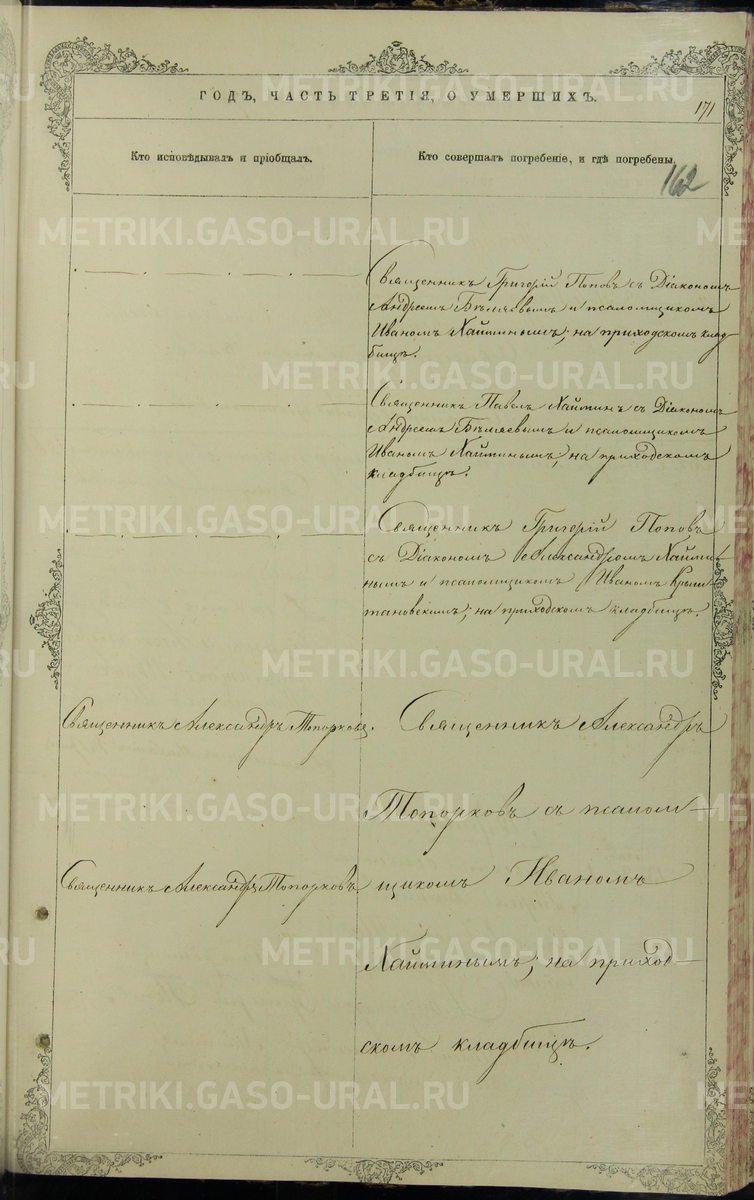 ГОДЪ, ЧАСТЬ ТРЕТІЯ, О УМЕРШИХЪ.
171
Кто исповѣдывалъ и пріобщалъ.
Кто совершалъ погребеніе, и гдѣ погребены.
162
Священникъ Григорій Поповъ съ Діакономъ
Андреемъ Бѣляевымъ и псаломщикомъ
Иваномъ Хайминымъ; на приходскомъ клад-
бищѣ.
Священникъ Павелъ Хайминъ съ Діакономъ
Андреемъ Бѣляевымъ и псаломщикомъ
Иваномъ Хайминымъ; на приходскомъ
кладбищѣ.
Священникъ Григорій Поповъ
съ Діакономъ Александромъ Хайми-
нымъ и псаломщикомъ Иваномъ
; на приходскомъ кладбищѣ.
Священникъ Александръ Топорковъ.
Священникъ Александръ
Топорковъ съ псалом-
Священникъ Александръ Топорковъ.
щикомъ Иваномъ
Хайминымъ; на приход-
скомъ кладбищѣ.
METRIKI.GASO-URAL.RU